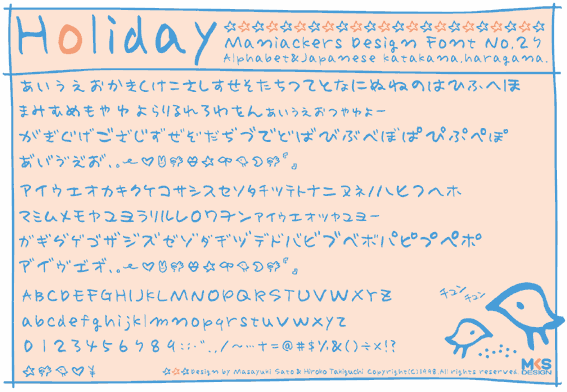 Holiday
☆☆☆☆☆☆☆☆☆☆☆☆☆☆☆☆☆☆☆☆☆☆☆
Maniackers Design Font No.29
Alphabet&Japanese katakana,haragana.
あいうえおかきくけこさしすせそたちつてとなにぬねのはひふへほ
まみむめもやゆよらりるれろわをんぁぃぅぇぉっゃゅょー
がぎぐげござじずぜぞだぢづでどばびぶべぼぱぴぷぺぽ
あ゛い゛ゔえ゛お゛、。
アイウエオカキクケコサシスセソタチツテトナニヌネノハヒフヘホ
マミムメモヤユヨラリルレロワヲンァィゥェォッャュョー
ガギグゲゴザジズゼゾダヂヅデドバビブベボパピプペポ
ア゛イ゛ヴエ゛オ゛、。
ABCDEFGHIJKLMNOPQRSTUVWXYZ
abcdefghijklmnopqrstuvwxyz
0123456789::·¨.,/~…+=@#$%&()÷×!?
¥
チュン
チュン
☆☆☆Design by Masayuki Sato & Hiroko Taniguchi Copyright(C)1998.All rights reserves.
MKS
DESIGN